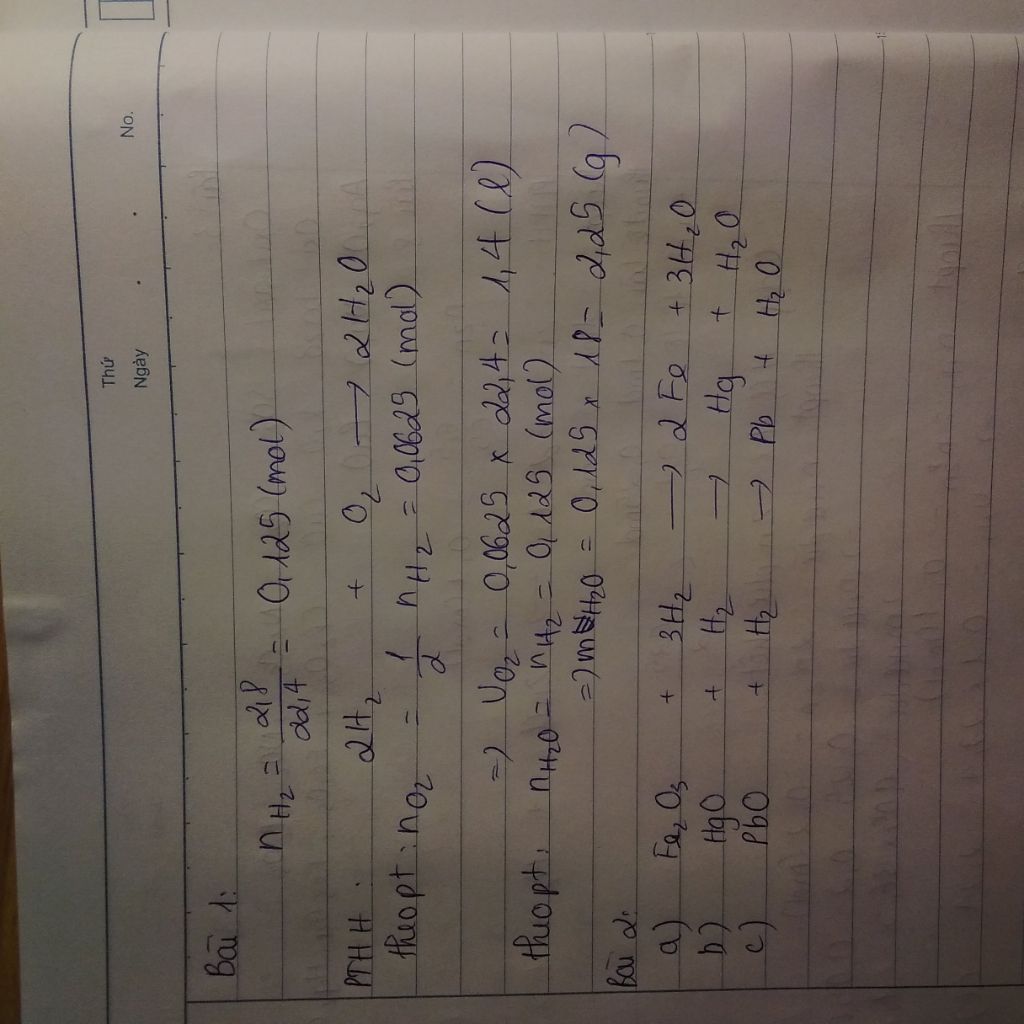 Thứ
Ngày
No.
Bài 1:
n H₂ = 2,8/22,4 = 0,125 (mol)
PTHH: 2H₂ + O₂ → 2H₂O
theo pt: nO₂ = 1/2 nH₂ = 0,0625 (mol)
=> VO₂ = 0,0625 x 22,4 = 1,4 (l)
theo pt: nH₂O = nH₂ = 0,125 (mol)
=> mH₂O = 0,125 x 18 = 2,25 (g)
Bài 2:
a) Fe₂O₃ + 3H₂ → 2Fe + 3H₂O
b) HgO + H₂ → Hg + H₂O
c) PbO + H₂ → Pb + H₂O